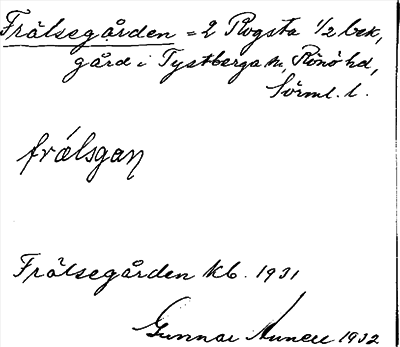 Frälsegården = 2 Rogsta 1/2 bek,
gård i Tystberga sn, Rönö hd,
Sörml. l.
frálsgaṇ
Frälsegården kb. 1931
Gunnar 1932